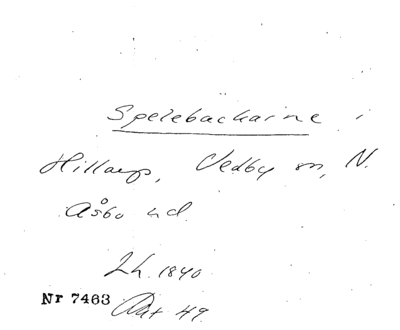 Spelebackarne i
Hillarp, Vedby sn, N.
Åsbo hd.
Lh. 1840
Nr 7463 Akt 49.